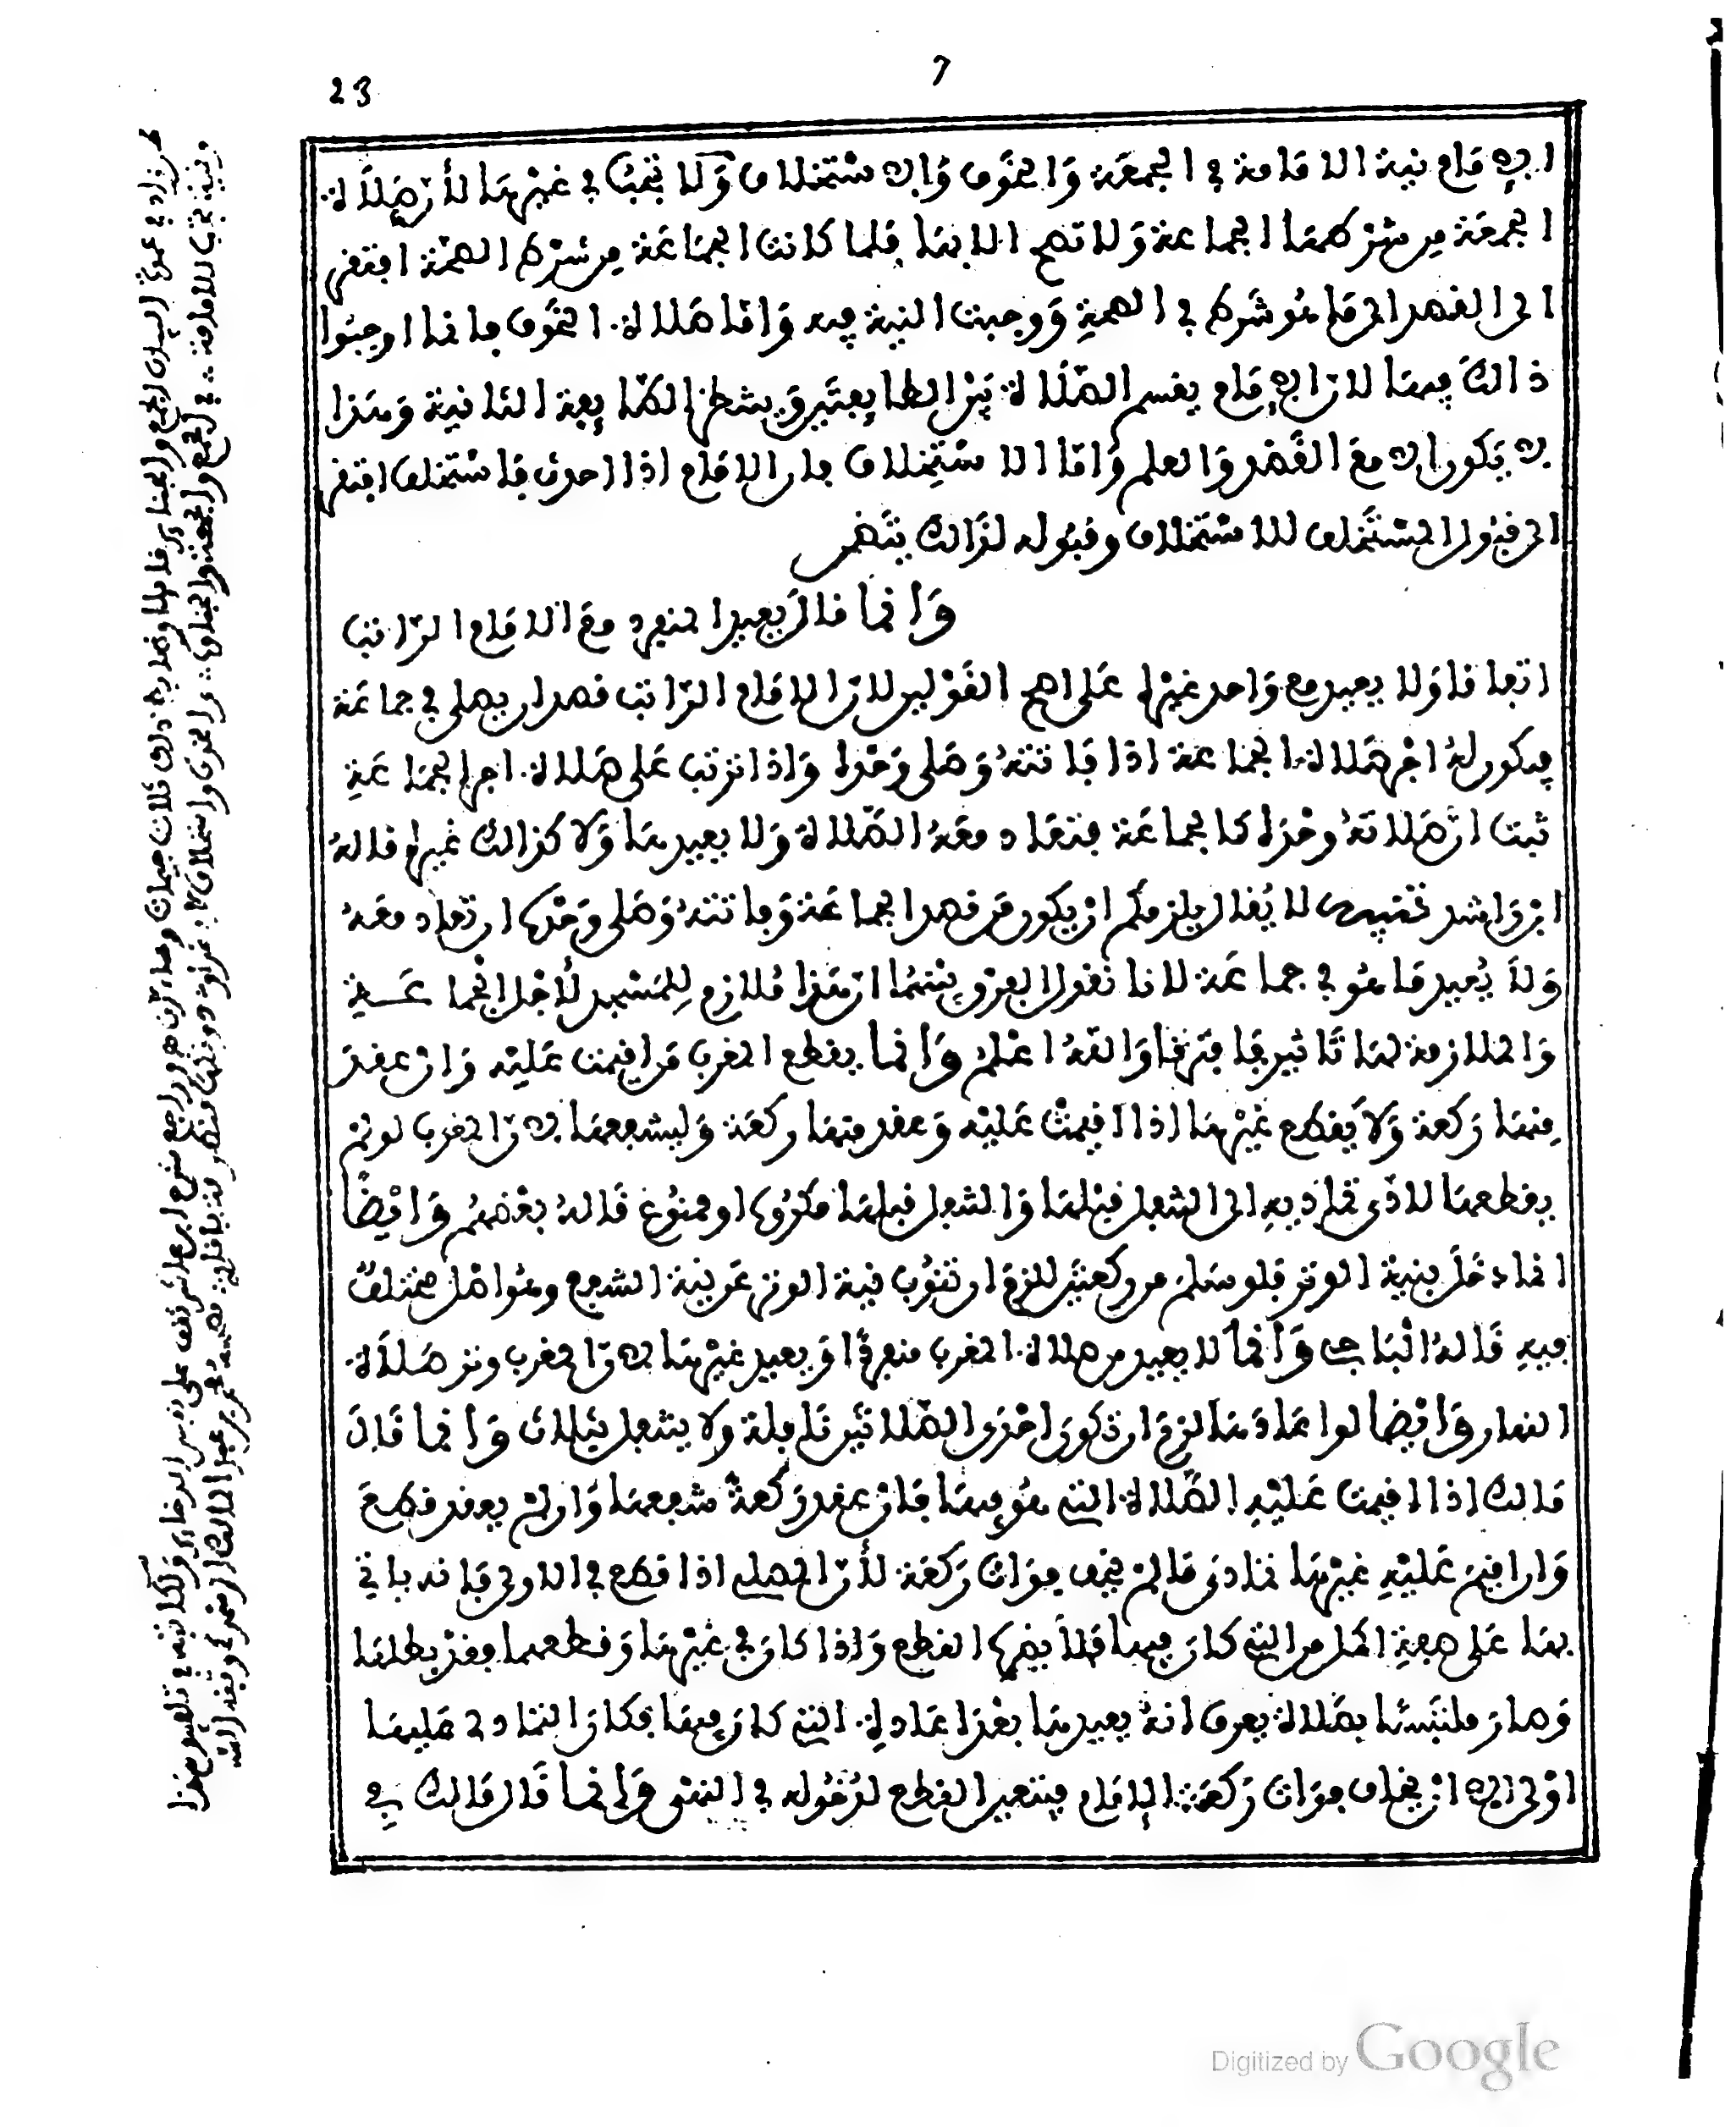 7
23
الامام نية الامامة في الجمعة والخوف والاستخلاف ولا تجب في غيرها لأن صلاة
الجمعة من شرطها الجماعة ولا تصح الا بها فلما كانت الجماعة من شرط الصحة افتقر
الى القصد الى ما هو شرط في الصحة ووجبت النية فيه واما صلاة الخوف فانما اوجبوا
ذالك فيها لان الامام يقسم الصلاة بين الطايفتين وينتظر الطايفة الثانية وهذا
لا يكون الا مع القصد والعلم واما الاستخلاف فلان الامام اذا احدث فاستخلف افتقر
الى قبول المستخلف للاستخلاف وقبوله لذالك يتضمن
وانما قال يعيد المنفرد مع الامام الراتب
اتفاقا ولا يعيد مع واحد غيره على اصح القولين لان الامام الراتب قصد ان يصلي في جماعة
فيكون له اجر صلاة الجماعة اذا فاتته وصلى وحده واذا ترتب على صلاة اجر الجماعة
ثبت ان صلاته وحده كالجماعة فتعاد معه الصلاة ولا يعيدها ولا كذالك غيره قاله
ابن راشد تنبيه لا يقال يلزمكم ان يكون من قصد الجماعة وفاتته وصلى وحده ان تعاد معه
ولا يعيد ما هو في جماعة لانا نقول الفرق بينهما ان هذا ملازم للمسجد لأجل الجماعـــة
والملازمة لها تاثير فافترقا والله اعلم وانما يقطع المغرب من اقيمت عليه وان عقد
منها ركعة ولا يقطع غيرها اذا اقيمت عليه وعقد منها ركعة وليشفعها لان المغرب لو لم
يقطعها لادى تماديه الى التنفل قبلها والتنفل قبلها مكروه او ممنوع قاله بعضهم وايضا
انما دخل بنية الوتر فلو سلم من ركعتين للزم ان تنوب نية الوتر عن نية الشفع وهو اصل مختلف
فيه قاله الباجي وانما لا يعيد من صلاة المغرب منفردا ويعيد غيرها لان المغرب وتر صلاة
النهار وايضا لو اعادها لزم ان تكون احدى الصلاتين نافلة ولا يتنفل بثلاث وانما قال
مالك اذا اقيمت عليه الصلاة التي هو فيها فان عقد ركعة شفعها وان لم يعقد قطع
وان اقيم عليه غيرها تمادى ما لم يخف فوات ركعة لأن المصلي اذا قطع في الاولى فانه ياتي
بها على صفة اكمل من التي كان فيها فلا يضره القطع واذا كان في غيرها وقطعها فقد بطلها
وصار ملتبسا بصلاة يعرف انه يعيدها بعد اعادة التي كان فيها فكان التمادي عليها
اولى الا ان يخاف فوات ركعة الامام فيتعين القطع لدخوله في النهي وانما قال مالك في